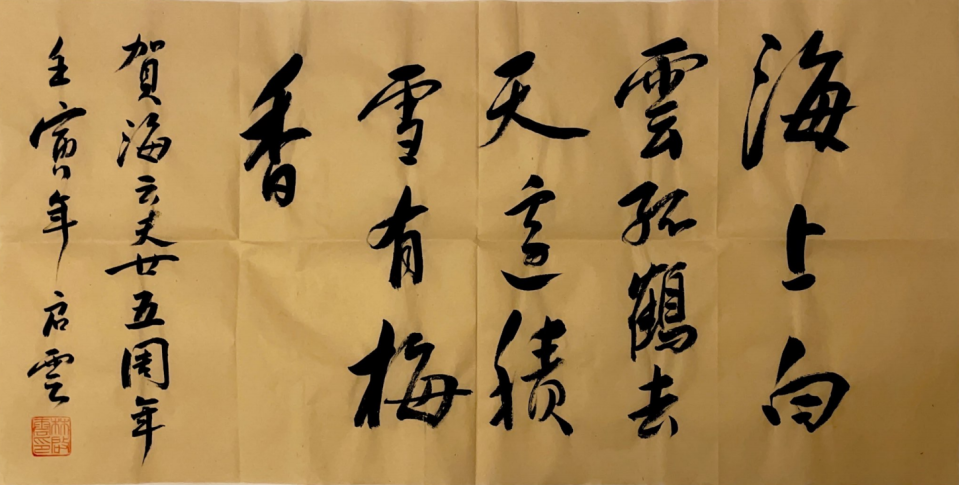 海上白
雲孤鶴去
天邊積
雪有梅
香
賀海云夫廿五周年
壬寅年 启雲
林啟雲印